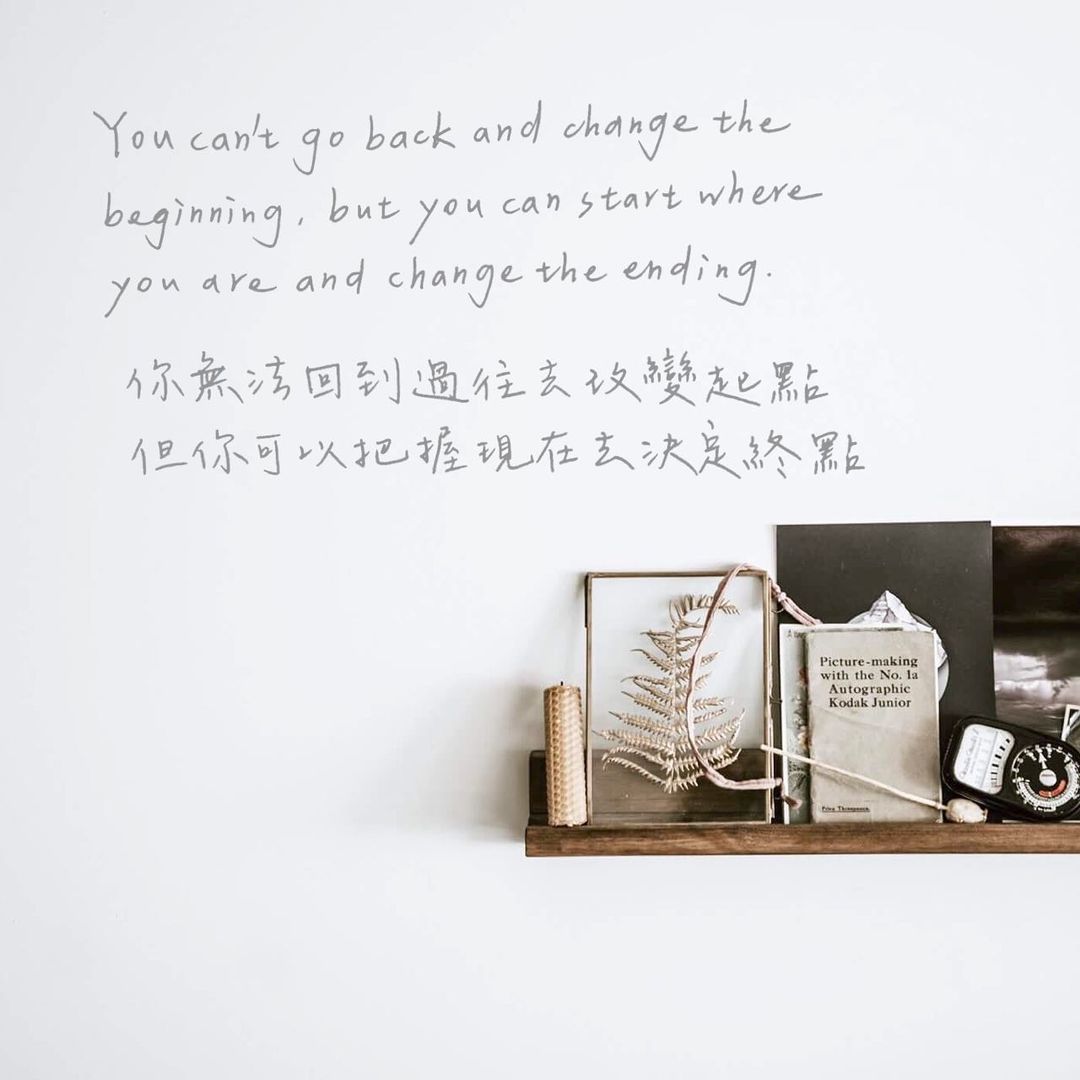 You can't go back and change the
beginning, but you can start where
you are and change the ending.
你無法回到過往去改變起點
但你可以把握現在去決定終點
Picture-making
with the No. 1a
Autographic
Kodak Junior